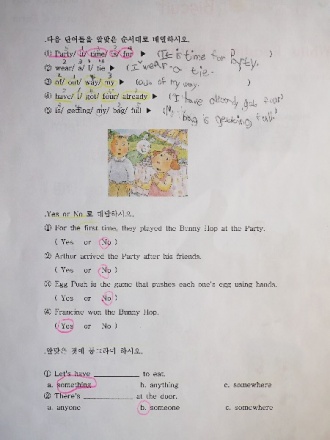 다음 단어들을 알맞은 순서대로 배열하시오.
(1) Party/ it/ time/ is/ for ▶ (It is time for Party.
② wear/ a/ I/ tie ▶ (I wear a tie. )
③ of/ out/ way/ my ▶ (out of my way. )
④ have/ I/ got/ four/ already ▶ (I have already got four
⑤ is/ getting/ my/ bag/ full ▶ (My bag is getting full.
Yes or No 로 대답하시오.
① For the first time, they played the Bunny Hop at the Party.
( Yes or No )
② Arthur arrived the Party after his friends.
( Yes or No )
③ Egg Push is the game that pushes each one's egg using hands.
( Yes or No )
④ Francine won the Bunny Hop.
( Yes or No )
알맞은 것에 동그라미 하시오.
① Let's have ____________ to eat.
a. something b. anything c. somewhere
② There's ____________ at the door.
a. anyone b. someone c. somewhere